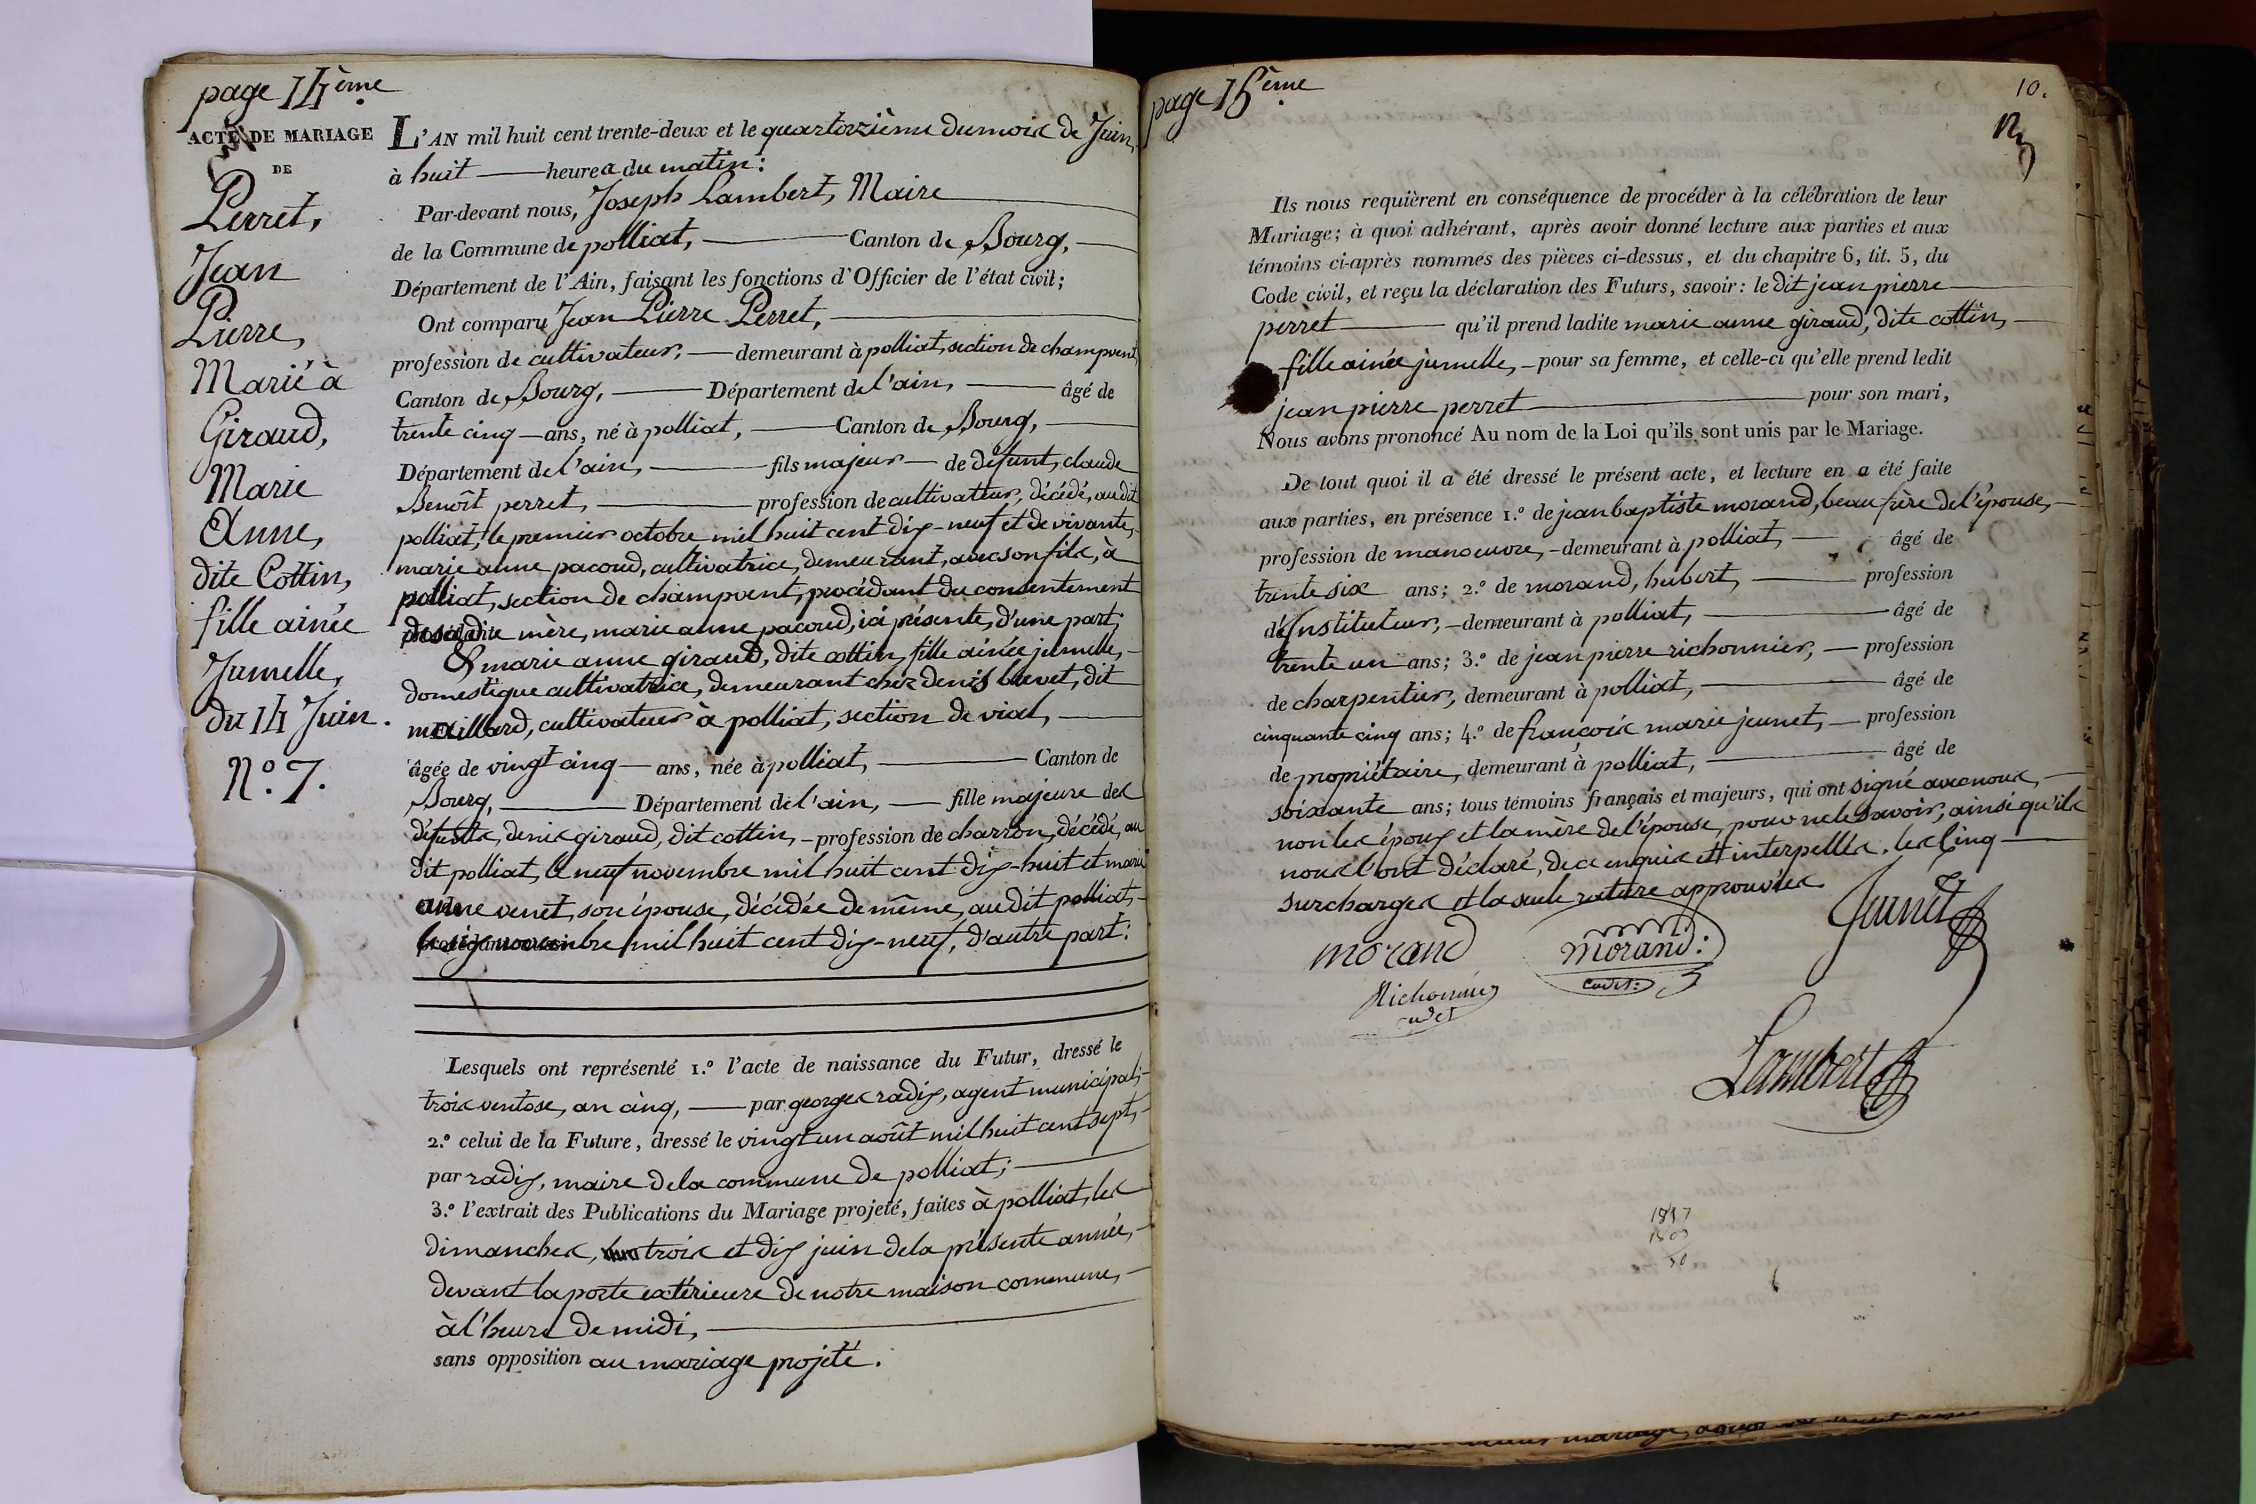 page 14ème
ACTE DE MARIAGE
DE
Perret,
Jean
Pierre,
Marié à
Giraud,
Marie
Anne,
dite Cottin,
fille ainée
Jumelle,
du 14 Juin.
N.º 7.
L'AN mil huit cent trente-deux et le quartorzième du mois de Juin,
à huit heures du matin:
Par-devant nous, Joseph Lambert, Maire
de la Commune de polliat, Canton de Bourg,
Département de l'Ain, faisant les fonctions d'Officier de l'état civil;
Ont comparu Jean Pierre Perret,
profession de cultivateur, demeurant à polliat, section de champvent,
Canton de Bourg, Département de l'ain, âgé de
trente cinq ans, né à polliat, Canton de Bourg,
Département de l'ain, fils majeur de défunt, claude
Benoît perret, profession de cultivateur, décédé, audit
polliat, le premier octobre mil huit cent dix-neuf et de vivante,
marie anne pacoud, cultivatrice, demeurant, avec son fils, à
polliat, section de champvent, procédant du consentement
de sadite mère, marie anne pacoud, ici présente, d'une part;
Et marie anne giraud, dite cottin, fille ainée jumelle,
domestique cultivatrice, demeurant chez denis blevet, dit
maillard, cultivateur à polliat, section de vial,
âgée de vingt cinq ans, née à polliat, Canton de
Bourg, Département de l'ain, fille majeure des
défunts, denis giraud, dit cottin, profession de charron, décédé, au
dit polliat, le neuf novembre mil huit cent dix-huit et marie
anne venet, son épouse, décédée de même, audit polliat,
le six novembre mil huit cent dix-neuf, d'autre part:
Lesquels ont représenté 1.º l'acte de naissance du Futur, dressé le
trois ventose, an cinq, par georges radix, agent municipal;
2.º celui de la Future, dressé le vingt un août mil huit cent sept,
par radix, maire de la commune de polliat;
3.º l'extrait des Publications du Mariage projeté, faites à polliat, les
dimanches, trois et dix juin de la présente année,
devant la porte extérieure de notre maison commune,
à l'heure de midi,
sans opposition au mariage projeté.
page 15ème
10.
Ils nous requièrent en conséquence de procéder à la célébration de leur
Mariage; à quoi adhérant, après avoir donné lecture aux parties et aux
témoins ci-après nommés des pièces ci-dessus, et du chapitre 6, tit. 5, du
Code civil, et reçu la déclaration des Futurs, savoir: le dit jean pierre
perret qu'il prend ladite marie anne giraud, dite cottin,
fille ainée jumelle, pour sa femme, et celle-ci qu'elle prend ledit
jean pierre perret pour son mari,
Nous avons prononcé Au nom de la Loi qu'ils sont unis par le Mariage.
De tout quoi il a été dressé le présent acte, et lecture en a été faite
aux parties, en présence 1.º de jean baptiste morand, beau frère de l'épouse,
profession de manoeuvre, demeurant à polliat, âgé de
trente six ans; 2.º de morand, hubert, profession
d'Instituteur, demeurant à polliat, âgé de
trente un ans; 3.º de jean pierre richonnier, profession
de charpentier, demeurant à polliat, âgé de
cinquante cinq ans; 4.º de françois marie jeunet, profession
de propriétaire, demeurant à polliat, âgé de
soixante ans; tous témoins français et majeurs, qui ont signé avec nous,
non les époux et la mère de l'épouse, pour ne le savoir, ainsi qu'ils
nous l'ont déclaré, de ce enquis et interpellés. les Cinq
surcharges et la seule rature approuvées.
morand
morand:
cadet:
Jeunet
Richonnier
cadet
Lambert